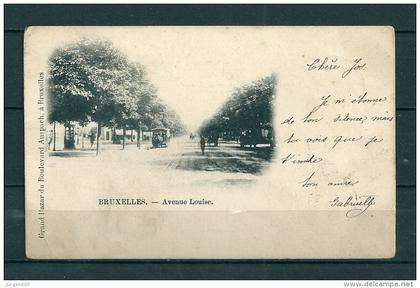 Grand Bazar du Boulevard Anspach, à Bruxelles
Chère Jos
Je m'étonne
de ton silence, mais
tu vois que je
t'imite
Ton amie
Gabrielle
BRUXELLES. — Avenue Louise.
jurgen000
© delcampe.net